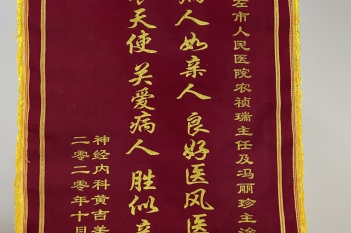 左市人民医院农祯瑞主任及冯丽珍主治
病人如亲人 良好医风医
天使 关爱病人 胜似亲
神经内科黄吉美
二零二零年十月